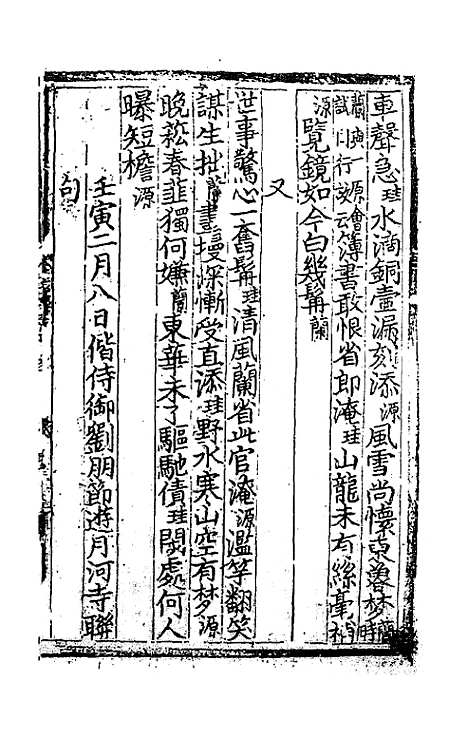 車聲急珪水滴銅壺漏刻添源風雪尚懷東𣸣梦蘭時
蘭與一源會
試同行故云簿書敢恨省郎淹珪山龍未有絲毫補
源覽鏡如今白幾髯蘭
又
世事驚心一奮髯珪清風蘭省此官淹源濫竽翻笑
謀生拙蘭畫墁深慚受直添珪野水寒山空有梦源
晩菘春韮獨何嫌蘭東華未了驅馳債珪閑處何人
曝短檐源
壬寅二月八日偕侍御劉朋節遊月河寺聯
句